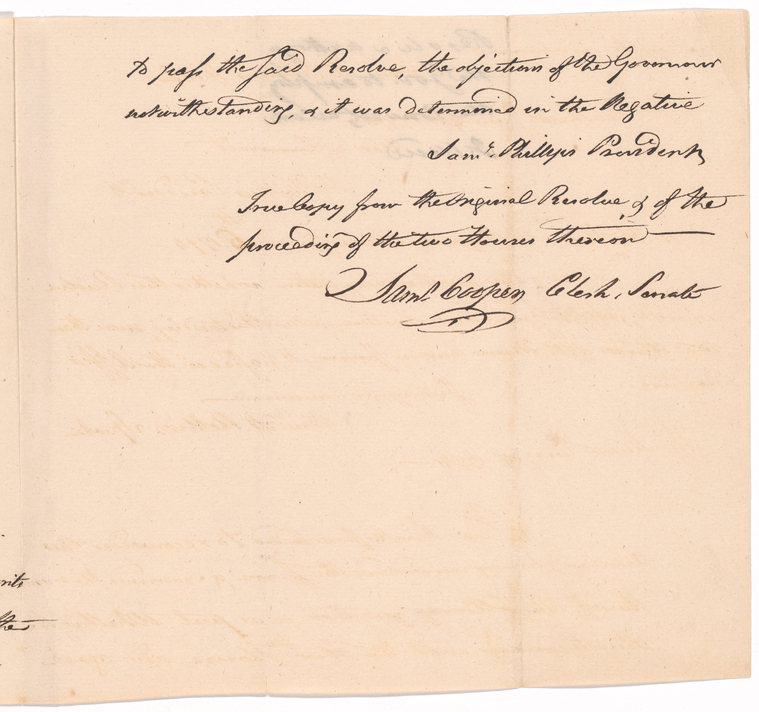 to pass the said Resolve, the objections of the Governour
notwithstanding, & it was determined in the Negative
Saml. Phillips President
True Copy from the Original Resolve & of the
proceedings of the two Houses thereon
Saml Cooper Clerk. Senate
the